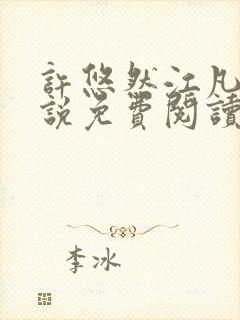 許悠然江凡
說免費閱讀
李冰